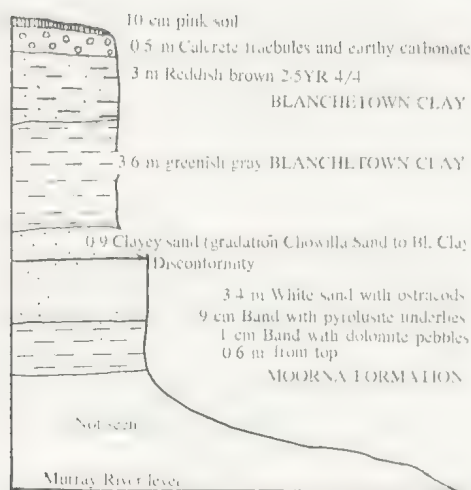 10 cm pink soil
0.5 m Calcrete nodules and earthy carbonate
3 m Reddish brown 2.5YR 4/4
BLANCHETOWN CLAY
3.6 m greenish gray BLANCHETOWN CLAY
0.9 Clayey sand (gradation Chowilla Sand to Bl. Clay
Disconformity
3.4 m White sand with ostracods
9 cm Band with pyrolusite underlies
1 cm Band with dolomite pebbles
0.6 m from top
MOORNA FORMATION
Not seen
Murray River level